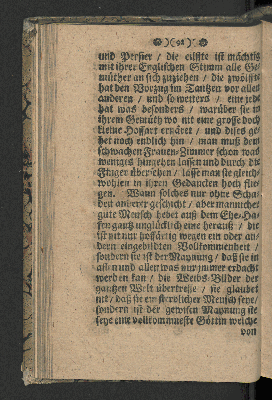 )( 92 )(
und Persier / die eilffte ist mächtig
mit ihrer Englischen Stimm alle Ge-
müther an sich zuziehen / die zwölffte
hat den Vorzug im Tantzen vor allen
anderen / und so weiters / eine jede
hat was besonders / warüber sie in
ihrem Gemüth wo nit eine grosse doch
kleine Hoffart erzäiget / und dises ge-
het noch endlich hin / man muß dem
schwachen Frauen-Zimmer schon was
weniges hingehen lassen und durch die
Finger übersehen / lasse man sie gleich-
wohlen in ihren Gedancken hoch flie-
gen. Wann solches nur ohne Scha-
den anderer geschicht / aber mancher
gute Mensch hebet auß dem Ehe-Ha-
fen gantz unglücklich eine herauß / die
ist nit nur hoffärtig wegen ein oder an-
dern eingebildten Vollkommenheit /
sondern sie ist der Maynung / daß sie in
allen und allen was nur immer erdacht
werden kan / die Weibs-Bilder der
gantzen Welt übertreffe / sie glaubet
nit / daß sie ein sterblicher Mensch seye /
sondern ist der gewisen Maynung sie
seye eine vollkommneste Göttin welche
von